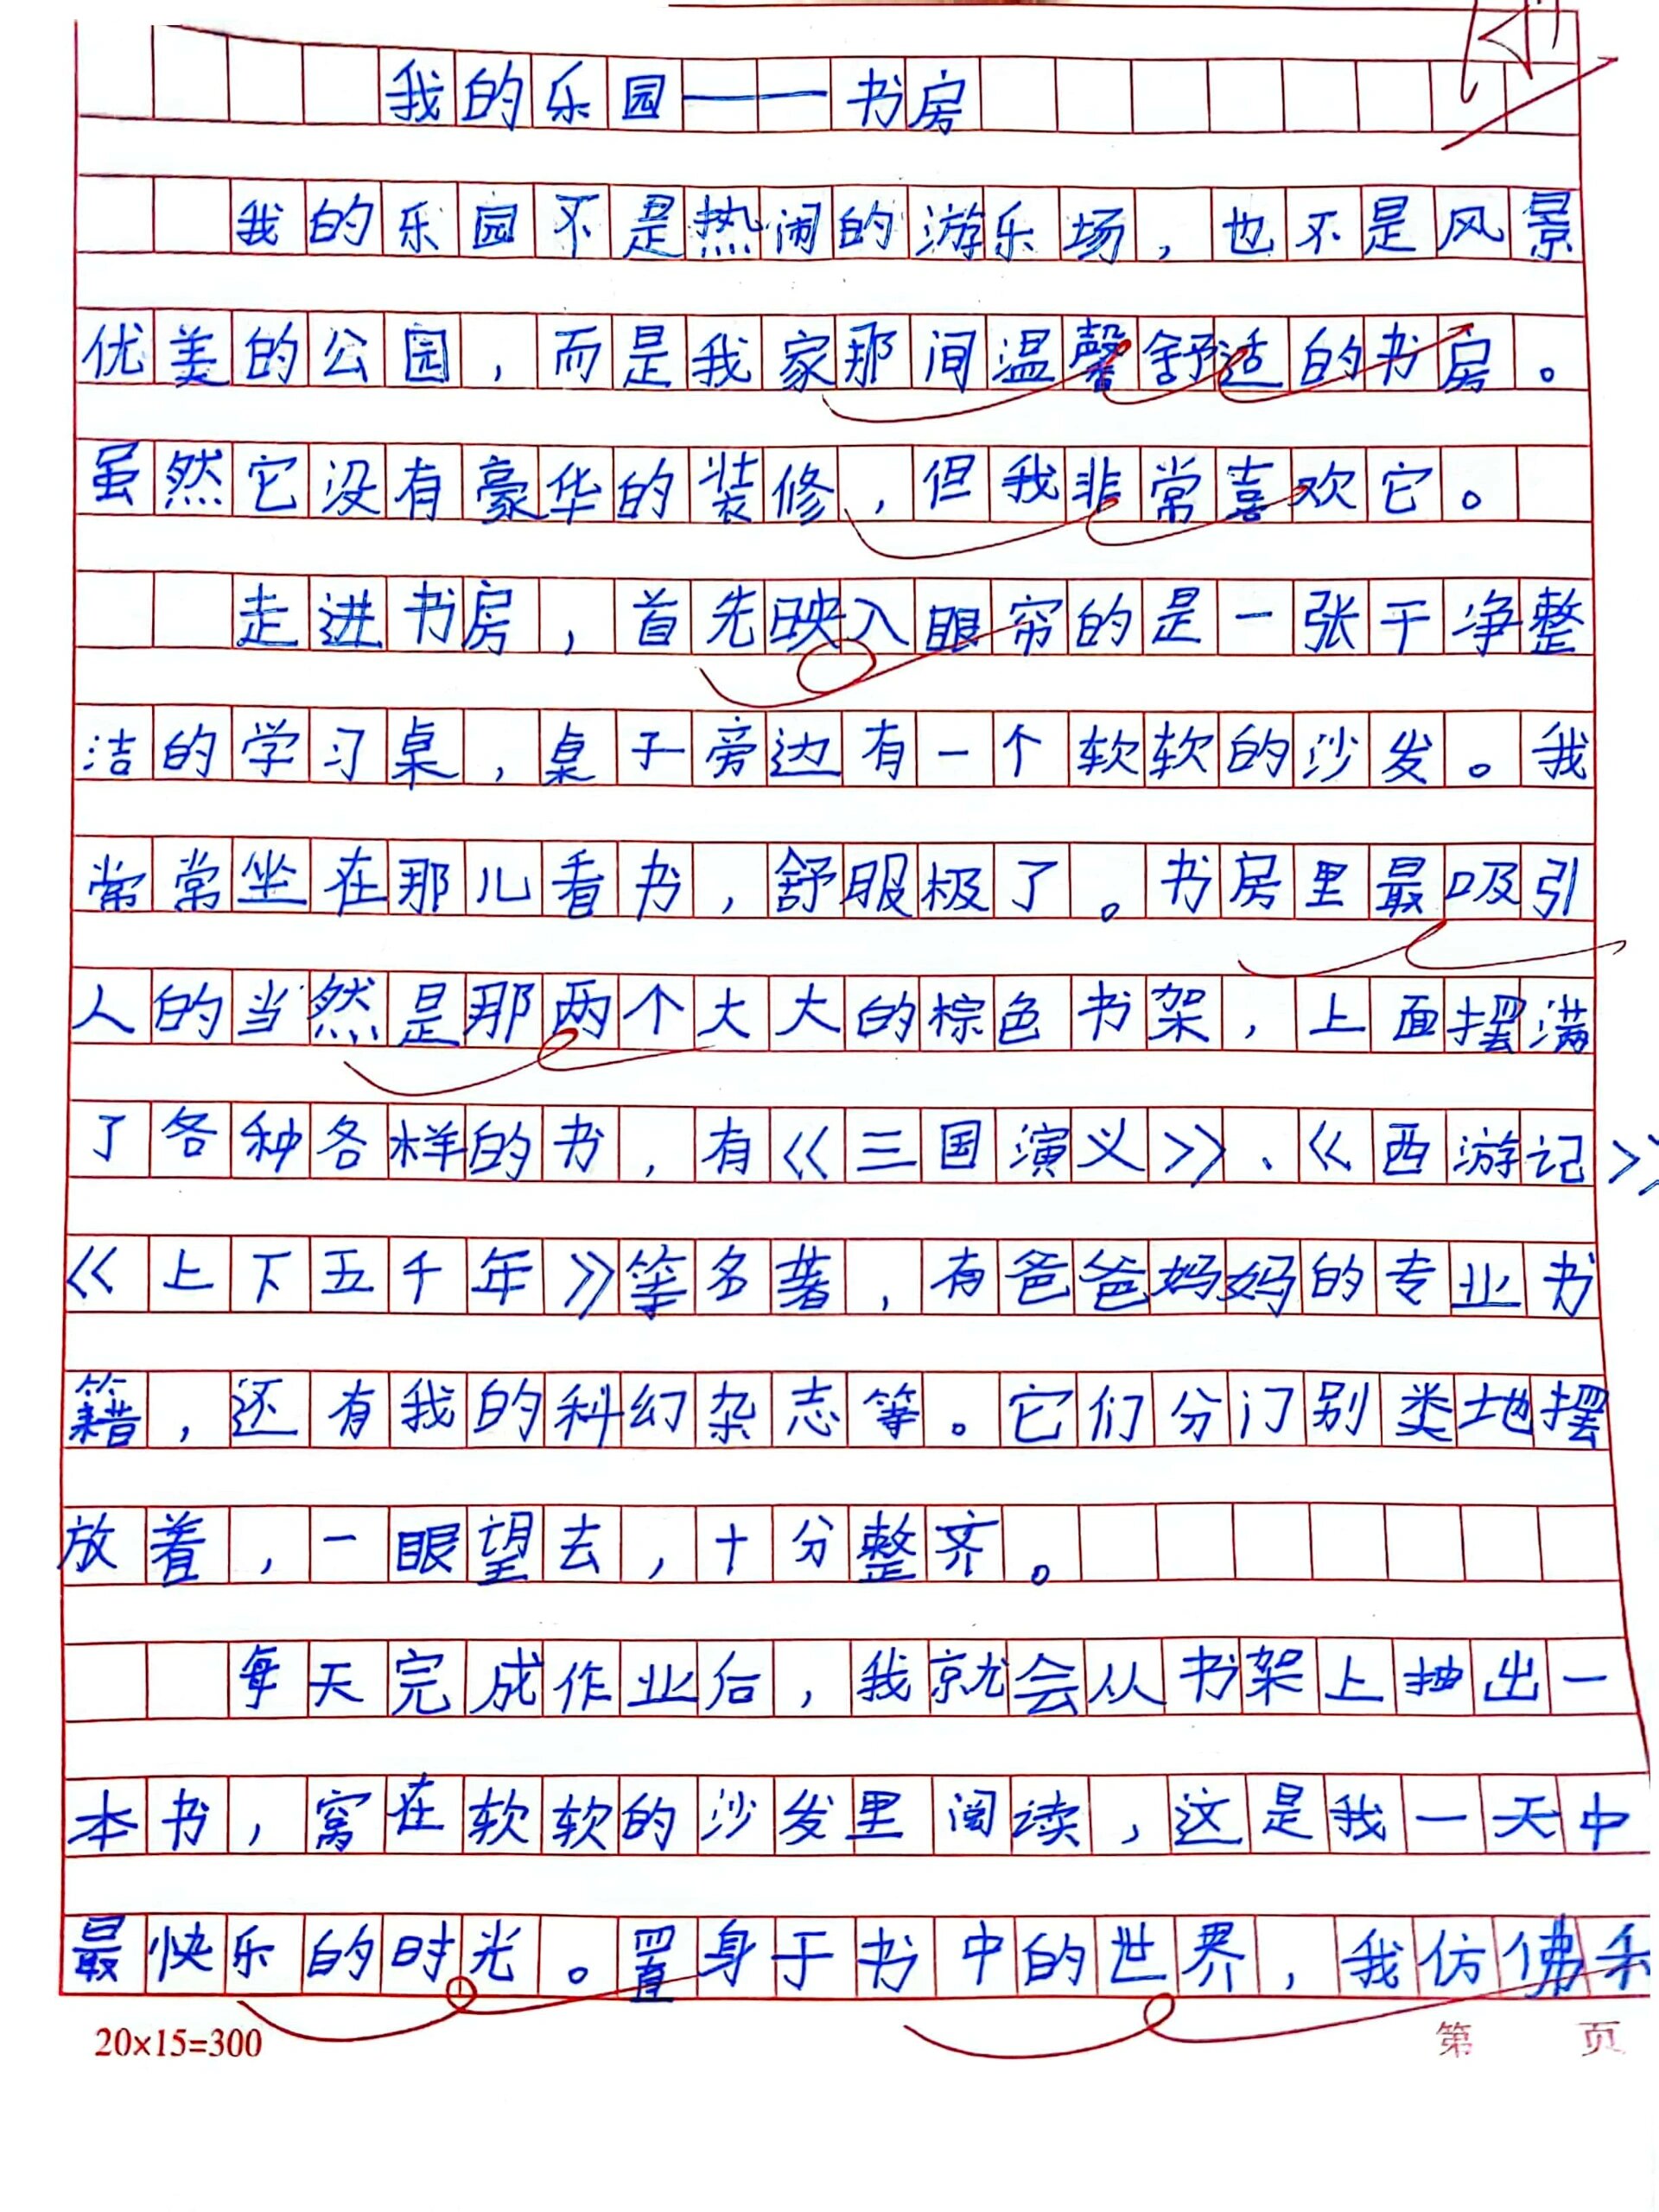 我的乐园——书房
我的乐园不是热闹的游乐场，也不是风景
优美的公园，而是我家那间温馨舒适的书房。
虽然它没有豪华的装修，但我非常喜欢它。
走进书房，首先映入眼帘的是一张干净整
洁的学习桌，桌子旁边有一个软软的沙发。我
常常坐在那儿看书，舒服极了。书房里最吸引
人的当然是那两个大大的棕色书架，上面摆满
了各种各样的书，有《三国演义》、《西游记》
《上下五千年》等名著，有爸爸妈妈的专业书
籍，还有我的科幻杂志等。它们分门别类地摆
放着，一眼望去，十分整齐。
每天完成作业后，我就会从书架上抽出一
本书，窝在软软的沙发里阅读，这是我一天中
最快乐的时光。置身于书中的世界，我仿佛
20×15=300
第 页